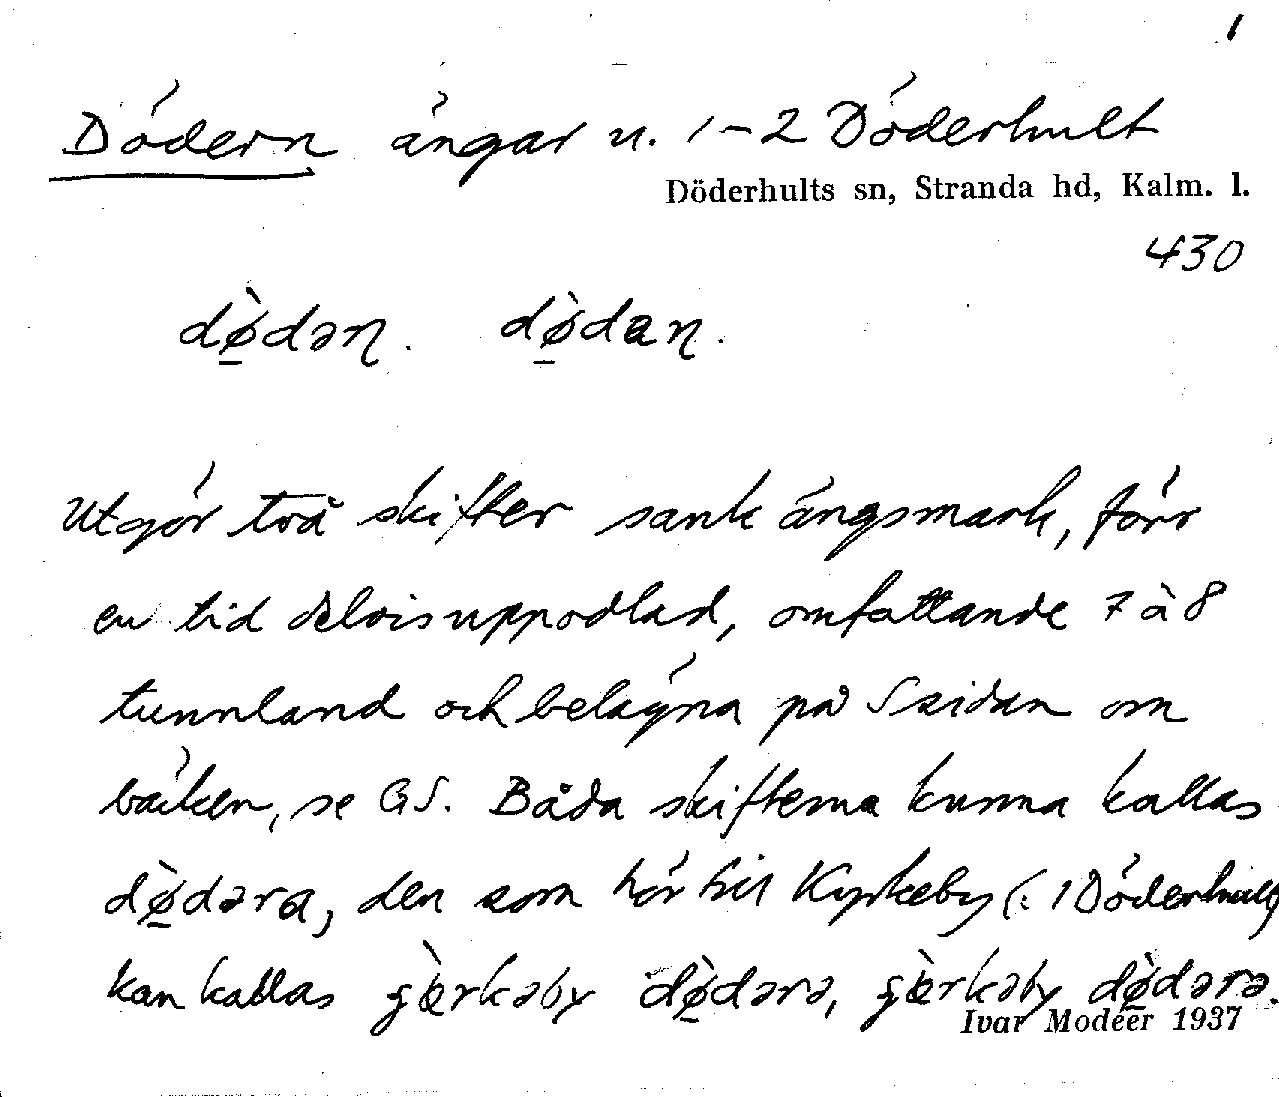 1
Dödern ängar u. 1–2 Döderhult
Döderhults sn, Stranda hd, Kalm. l.
430
dø̀dəɳ. dø̀daɳ.
Utgör två skifter sank ängsmark, förr
en tid delvis uppodlad, omfattande 7 à 8
tunnland och belägna på S sidan om
bäcken, se GS. Båda skifterna kunna kallas
dø̀dəra, den som hör till Kyrkeby (: 1 Döderhult)
kan kallas dø̀dərə, dø̀dərə.
Ivar Modéer 1937